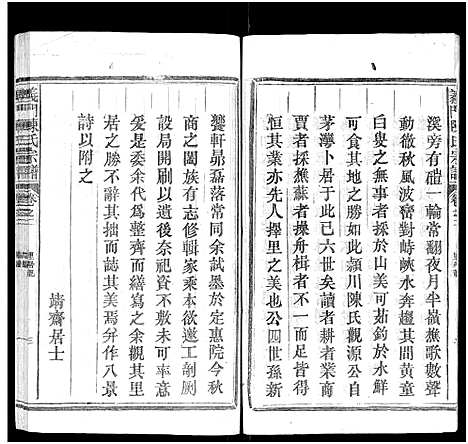 溪旁有磑一輪常翻夜月半嶺樵歌數聲
動徹秋風波窰對峙峽水奔趨其間黄童
白叟之無事者採於山美可茹釣於水鮮
可食其地之勝如此潁川陳氏觀源公自
茅灣卜居于此已六世矣讀者耕者業商
賈者採樵蘇者操舟楫者不一而足皆得
恒其業亦先人擇里之美也公四世孫新
饗軒昻磊落常同余試墨於定惠院今秋
商之闔族有志修輯家乘本欲遂工剞劂
設局開刷以道後奈祀資不敷未可卒意
爰是委余代為整齊而繕寫之余觀其里
居之勝不辭其拙而成其美焉并作八景
詩以附之
靖齋居士
義門陳氏宗譜
卷之二
義門陳氏宗譜
卷之二